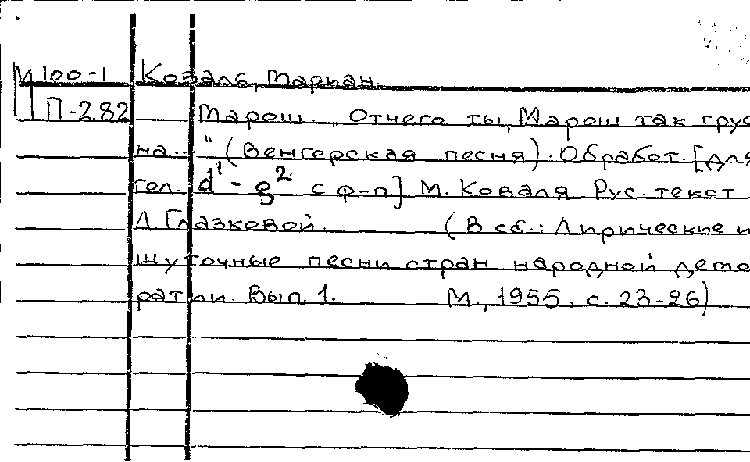 М 100-1 Коваль, Мариан
П-282 Марош. „Отчего ты, Марош так грус
на..." (Венгерская песня). Обработ. [для
гол. d¹-g² с ф-п] М. Коваля Рус. текст
Л. Глазковой. (В сб.: Лирические и
шуточные песни стран народной демо
ратии. Вып 1. М., 1955. с. 23-26)